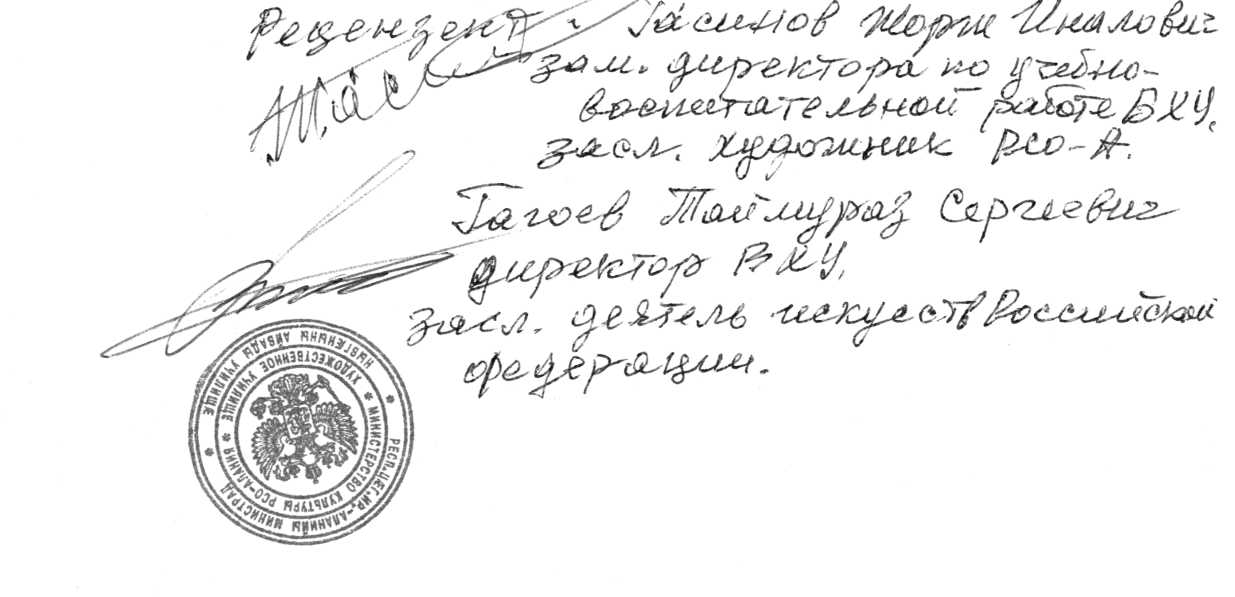 Рецензент: Гасинов Жорж Иналович
зам. директора по учебно-
воспитательной работе ВХУ,
засл. художник РСО-А.
Гагоев Таймураз Сергеевич
директор ВХУ,
засл. деятель искусств Российской
федерации.
МИНИСТЕРСТВО КУЛЬТУРЫ РСО-АЛАНИЯ * ХУДОЖЕСТВЕННОЕ УЧИЛИЩЕ *